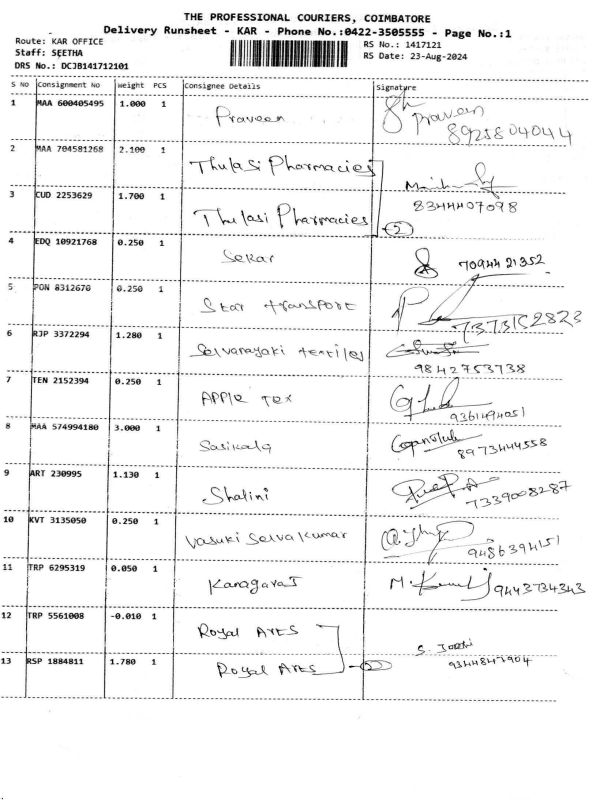 THE PROFESSIONAL COURIERS, COIMBATORE
Delivery Runsheet - KAR - Phone No.:0422-3505555 - Page No.:1
Route: KAR OFFICE
Staff: SEETHA
DRS No.: DCJB141712101
RS No.: 1417121
RS Date: 23-Aug-2024
S No Consignment No Weight PCS Consignee Details Signature
1 MAA 600405495 1.000 1 Praveen Praveen
8925804044
2 MAA 704581268 2.100 1 Thulasi Pharmacies
8344407098
3 CUD 2253629 1.700 1 Thulasi Pharmacies 2
4 EDQ 10921768 0.250 1 Sekar 7094421352
5 PON 8312670 0.250 1 Star transport
6 RJP 3372294 1.280 1 Selvanayaki textiles
9842753738
7 TEN 2152394 0.250 1 APPle Tex
9361494051
8 MAA 574994180 3.000 1 Sasikala
8973444558
9 ART 230995 1.130 1 Shalini
7339008287
10 KVT 3135050 0.250 1 Vasuki Selvakumar
9486394151
11 TRP 6295319 0.050 1 Kanagaraj 9443734343
12 TRP 5561008 -0.010 1 Royal Arts
13 RSP 1884811 1.780 1 Royal Arts 2